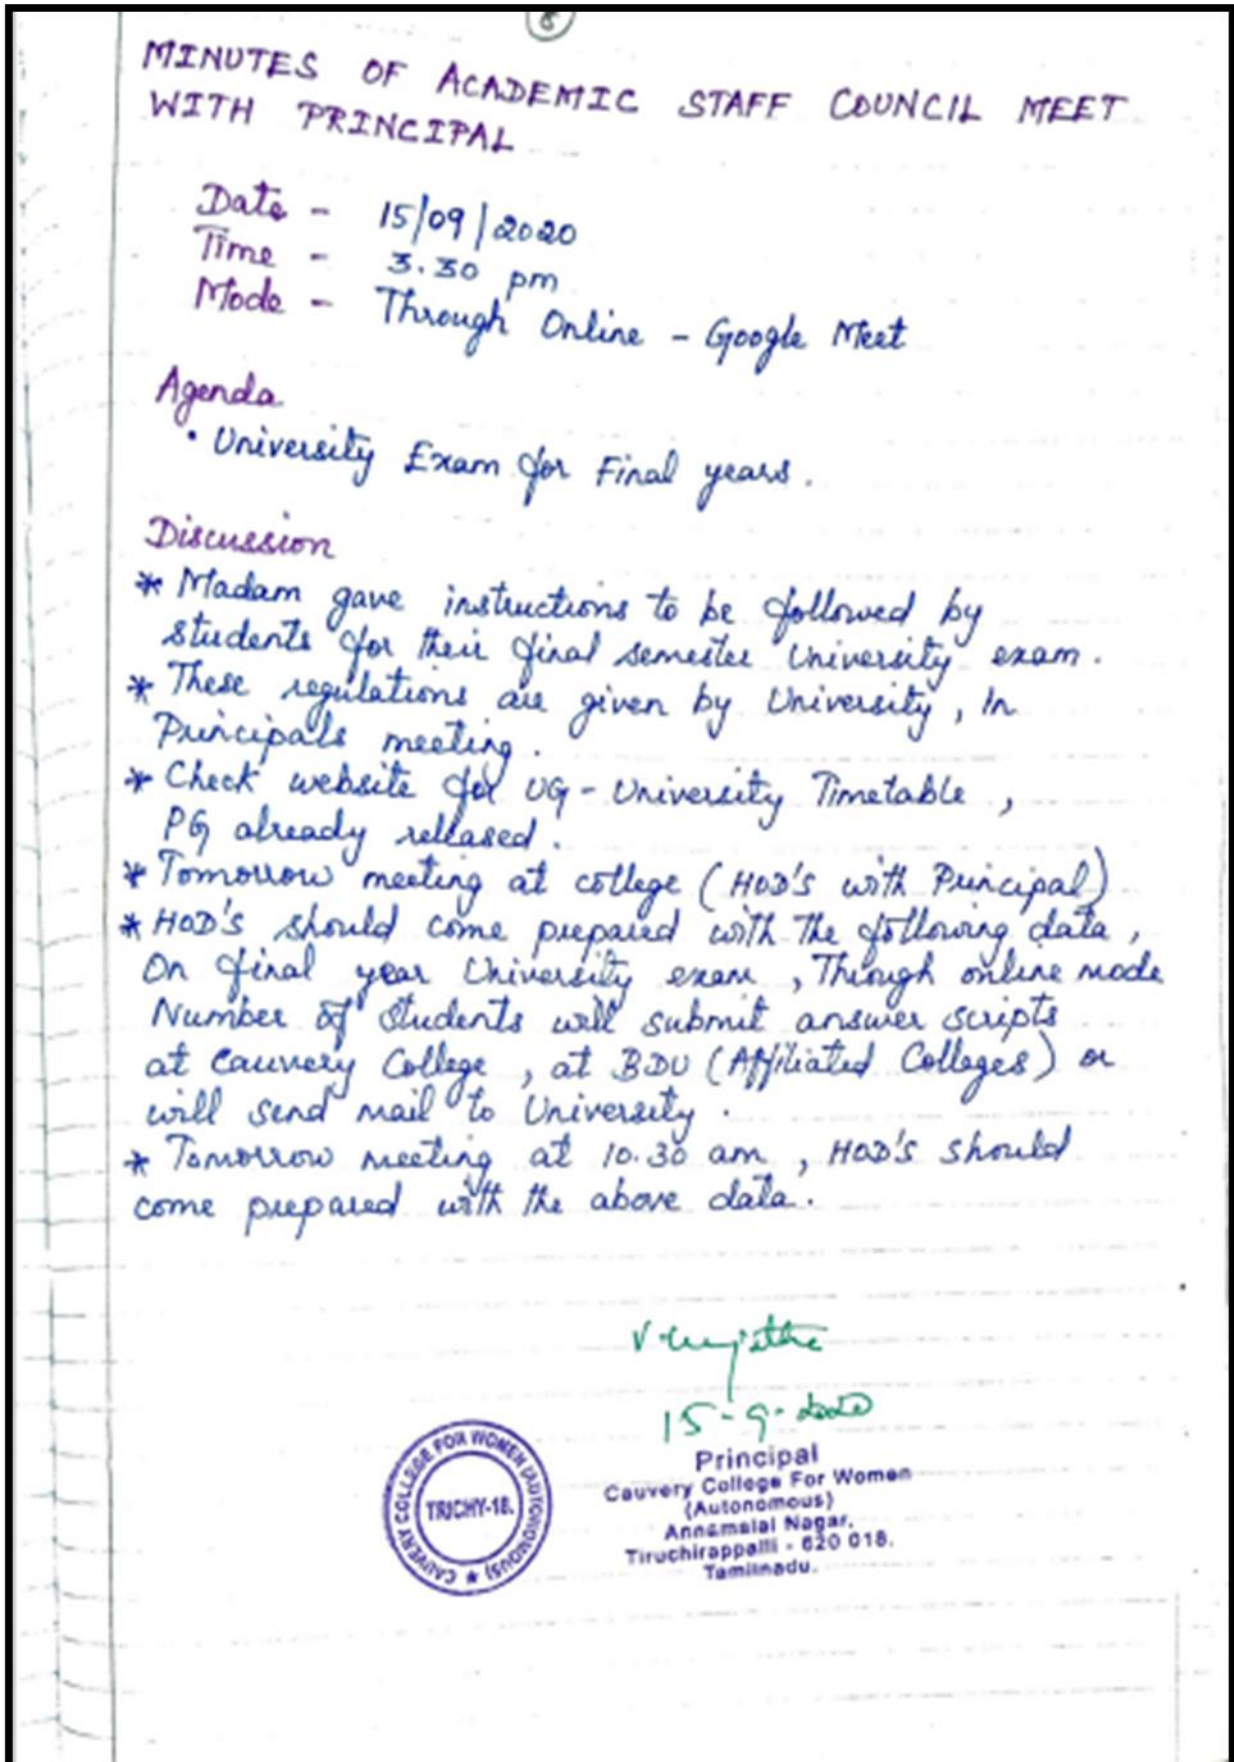 8
MINUTES OF ACADEMIC STAFF COUNCIL MEET
WITH PRINCIPAL
Date - 15/09/2020
Time - 3.30 pm
Mode - Through Online - Google Meet
Agenda
• University Exam for Final years.
Discussion
* Madam gave instructions to be followed by
students for their final semester University exam.
* These regulations are given by University, In
Principals meeting.
* Check website for UG - University Timetable,
PG already released.
* Tomorrow meeting at college (HOD's with Principal)
* HOD's should come prepared with the following data,
On final year University exam, Through online mode
Number of Students will submit answer scripts
at Cauvery College, at BDU (Affiliated Colleges) or
will send mail to University.
* Tomorrow meeting at 10.30 am, HOD's should
come prepared with the above data.
15-9-2020
Principal
Cauvery College For Women
(Autonomous)
Annamalai Nagar,
Tiruchirappalli - 620 018.
Tamilnadu.
CAUVERY COLLEGE FOR WOMEN (AUTONOMOUS) ★
TRICHY-18.